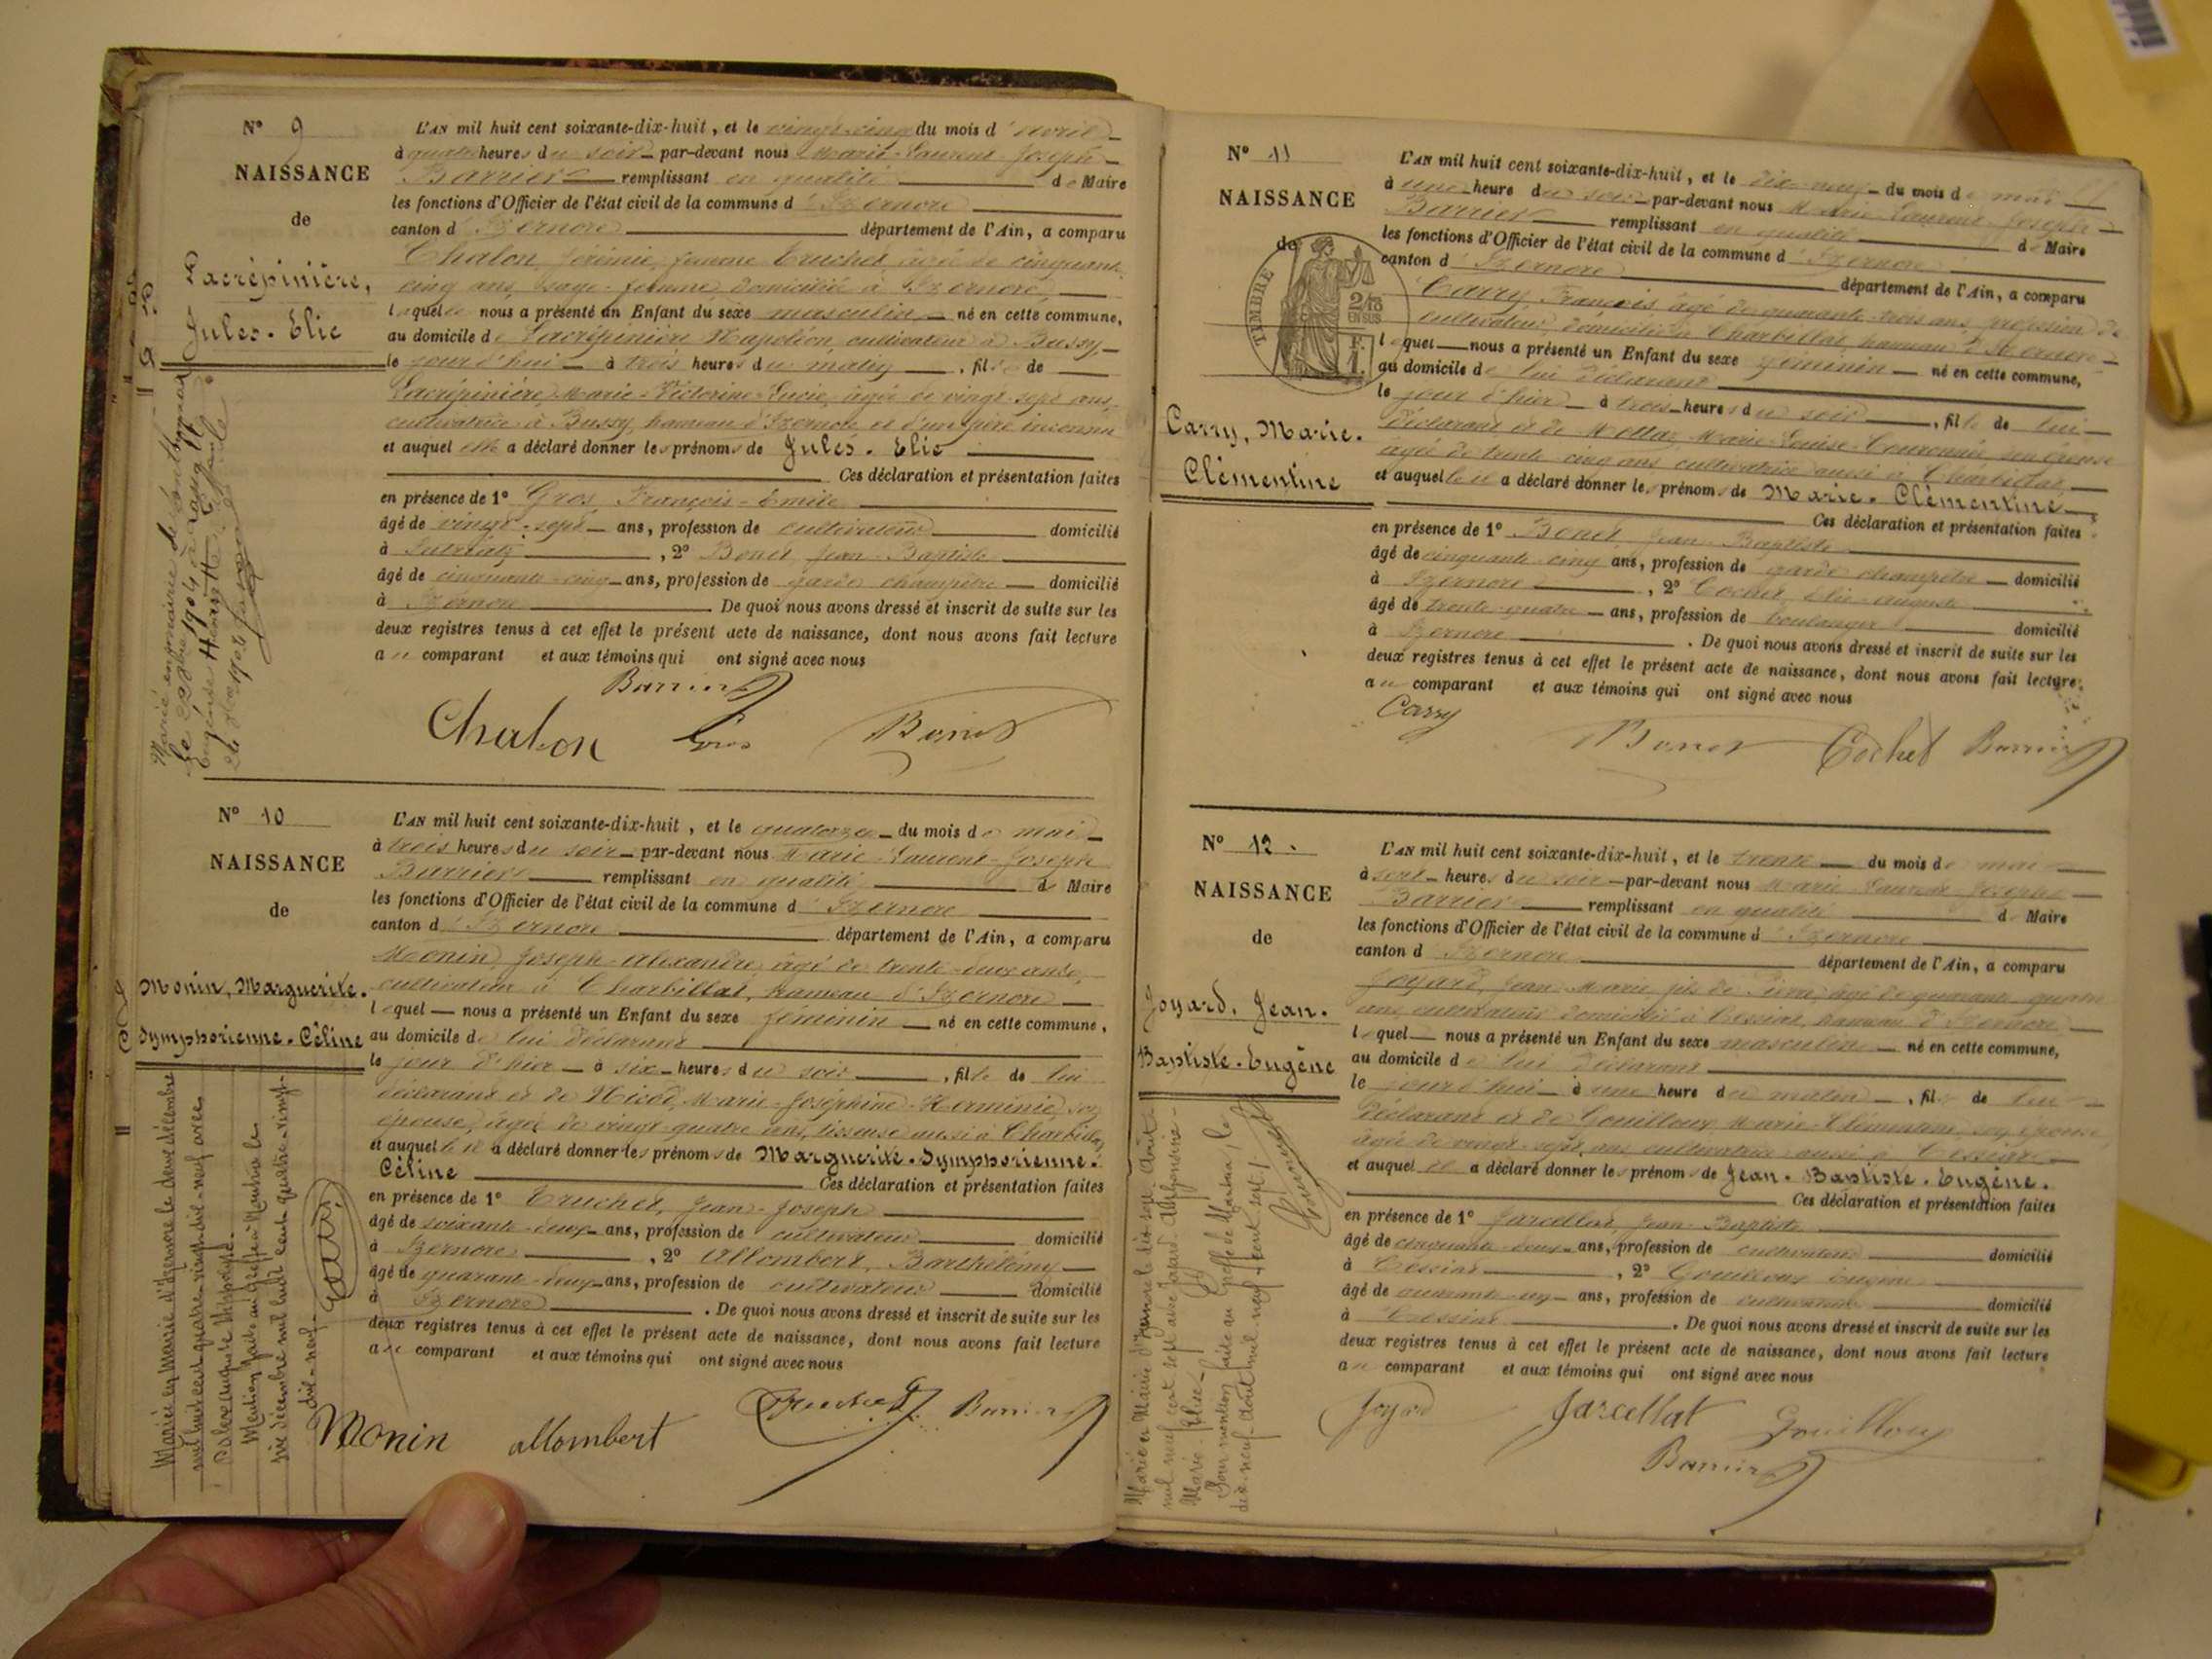 N° 9
NAISSANCE
de
Lacrépinière,
Jules-Elie
L'AN mil huit cent soixante-dix-huit, et le vingt-cinq du mois d'avril
à quatre heures du soir par-devant nous Marie-Laurent-Joseph
Barrier remplissant en qualité de Maire
les fonctions d'Officier de l'état civil de la commune d'Izernore
canton d'Izernore département de l'Ain, a comparu
Chalon, Jérémie, femme Truchet, âgée de cinquante
cinq ans, sage-femme domiciliée à Izernore,
laquelle nous a présenté un Enfant du sexe masculin né en cette commune,
au domicile de Lacrépinière Napoléon, cultivateur à Bussy,
le jour d'hui à trois heures du matin, fils de
Lacrépinière, Marie-Victorine-Lucie, âgée de vingt-sept ans,
cultivatrice à Bussy, hameau d'Izernore et d'un père inconnu
et auquel elle a déclaré donner les prénoms de Jules-Elie
Ces déclaration et présentation faites
en présence de 1° Gros, François-Emile
âgé de vingt-sept ans, profession de cultivateur domicilié
à , 2° Bonet, Jean-Baptiste
âgé de cinquante-cinq ans, profession de garde champêtre domicilié
à Izernore. De quoi nous avons dressé et inscrit de suite sur les
deux registres tenus à cet effet le présent acte de naissance, dont nous avons fait lecture
au comparant et aux témoins qui ont signé avec nous
Barrier
Chalon Gros Bonet
N° 10
NAISSANCE
de
Monin, Marguerite-
Symphorienne-Céline
L'AN mil huit cent soixante-dix-huit, et le quatorze du mois de mai
à trois heures du soir par-devant nous Marie-Laurent-Joseph
Barrier remplissant en qualité de Maire
les fonctions d'Officier de l'état civil de la commune d'Izernore
canton d'Izernore département de l'Ain, a comparu
Monin, Joseph-Alexandre, âgé de trente-deux ans,
cultivateur à Charbillat, hameau d'Izernore
lequel nous a présenté un Enfant du sexe féminin né en cette commune,
au domicile de lui déclarant
le jour d'hier à six heures du soir, fille de lui
déclarant et de Marie-Joséphine-Herminie, son
épouse, âgée de vingt-quatre ans, tisseuse aussi à Charbillat
et auquelle il a déclaré donner les prénoms de Marguerite-Symphorienne-
Céline Ces déclaration et présentation faites
en présence de 1° Truchet, Jean-Joseph
âgé de soixante-deux ans, profession de cultivateur domicilié
à Izernore, 2° Allombert, Barthélémy
âgé de quarante-deux ans, profession de cultivateur domicilié
à Izernore. De quoi nous avons dressé et inscrit de suite sur les
deux registres tenus à cet effet le présent acte de naissance, dont nous avons fait lecture
au comparant et aux témoins qui ont signé avec nous
Monin Allombert Truchet Barrier
Mariée en Mairie d'Izernore le deux décembre
mil huit cent quatre-vingt-dix-neuf avec
Mention faite au greffe à Nantua le
six décembre mil huit cent quatre-vingt-
dix-neuf
N° 11
NAISSANCE
de
TIMBRE
2/10
EN SUS
Carry, Marie-
Clémentine
L'AN mil huit cent soixante-dix-huit, et le dix-neuf du mois de mai
à une heure du soir par-devant nous Marie-Laurent-Joseph
Barrier remplissant en qualité de Maire
les fonctions d'Officier de l'état civil de la commune d'Izernore
canton d'Izernore département de l'Ain, a comparu
Carry, François, âgé de quarante-trois ans, profession de
cultivateur, domicilié à Charbillat, hameau d'Izernore
lequel nous a présenté un Enfant du sexe féminin né en cette commune,
au domicile de lui déclarant
le jour d'hier à trois heures du soir, fille de lui
déclarant et de Mollaz, Marie-Louise, son épouse
âgée de trente-cinq ans, cultivatrice aussi à Charbillat,
et auquelle il a déclaré donner les prénoms de Marie-Clémentine
Ces déclaration et présentation faites
en présence de 1° Bonet, Jean-Baptiste
âgé de cinquante-cinq ans, profession de garde champêtre domicilié
à Izernore, 2° Cochet, Elie-Auguste
âgé de trente-quatre ans, profession de boulanger domicilié
à Izernore. De quoi nous avons dressé et inscrit de suite sur les
deux registres tenus à cet effet le présent acte de naissance, dont nous avons fait lecture
au comparant et aux témoins qui ont signé avec nous
Carry
Bonet Cochet Barrier
N° 12.
NAISSANCE
de
Joyard, Jean-
Baptiste-Eugène
L'AN mil huit cent soixante-dix-huit, et le trente du mois de mai
à sept heures du soir par-devant nous Marie-Laurent-Joseph
Barrier remplissant en qualité de Maire
les fonctions d'Officier de l'état civil de la commune d'Izernore
canton d'Izernore département de l'Ain, a comparu
Joyard, Jean-Marie, fils de Pierre, âgé de quarante-quatre
ans, cultivateur domicilié à Cessiat, hameau d'Izernore
lequel nous a présenté un Enfant du sexe masculin né en cette commune,
au domicile de lui déclarant
le jour d'hui à une heure du matin, fils de lui
déclarant et de Gouilloux, Marie-Clémentine, son épouse,
âgée de vingt-sept ans, cultivatrice aussi à Cessiat
et auquel il a déclaré donner les prénoms de Jean-Baptiste-Eugène.
Ces déclaration et présentation faites
en présence de 1° Jarcellat, Jean-Baptiste
âgé de cinquante-deux ans, profession de cultivateur domicilié
à Cessiat, 2° Gouilloux, Eugène
âgé de quarante-un ans, profession de cultivateur domicilié
à Cessiat. De quoi nous avons dressé et inscrit de suite sur les
deux registres tenus à cet effet le présent acte de naissance, dont nous avons fait lecture
au comparant et aux témoins qui ont signé avec nous
Joyard Jarcellat Gouilloux
Barrier
Marié en Mairie d'Izernore le dix-sept Août
mil neuf cent sept avec
Marie-Elise
Pour mention faite au Greffe de Nantua, le
dix-neuf Août mil neuf cent sept.